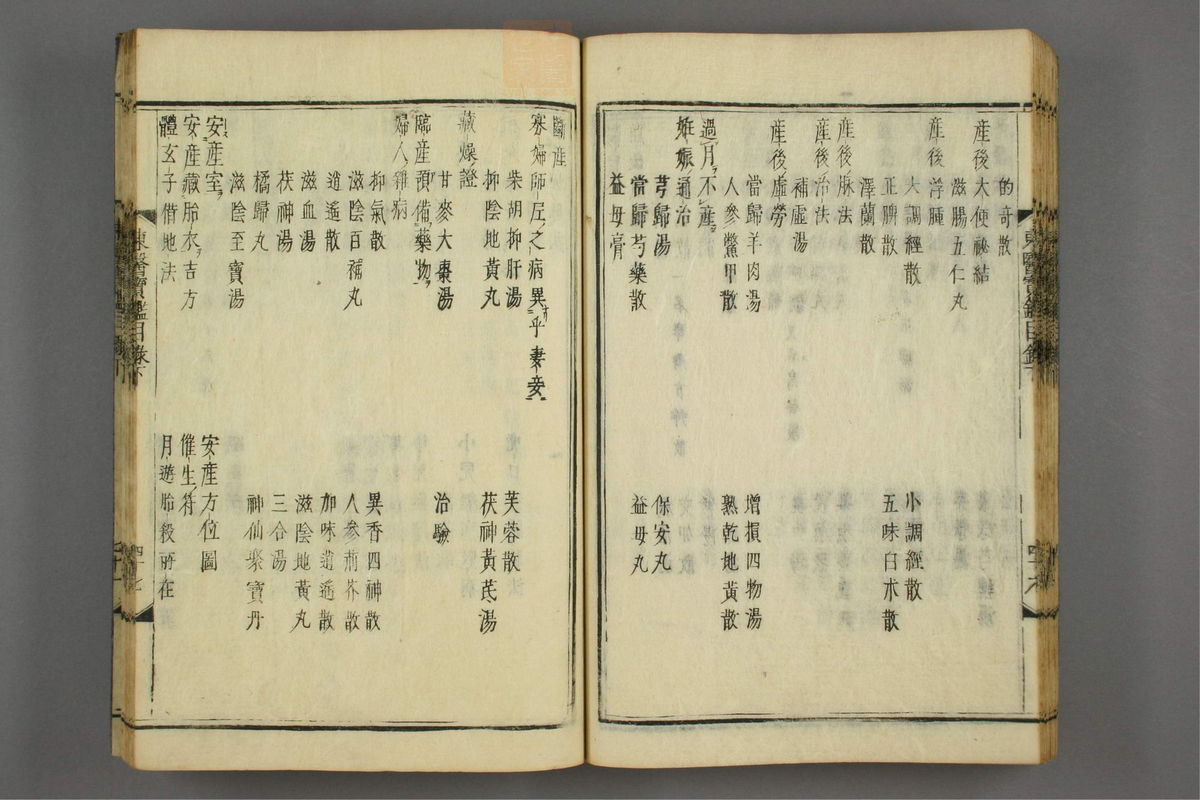 的奇散
産後大便祕結
滋腸五仁丸
産後浮腫
大調經散
小調經散
正脾散
五味白朮散
澤蘭散
産後脉法
産後治法
補虛湯
産後虛勞
當歸羊肉湯
增損四物湯
人參鱉甲散
熟乾地黃散
過月不産
姙娠通治
芎歸湯
保安丸
當歸芍藥散
益母丸
益母膏
斷産
寡婦師尼之病異乎妻妾
柴胡抑肝湯
芙蓉散
抑陰地黃丸
茯神黃芪湯
藏燥證
甘麥大棗湯
治驗
臨産預備藥物
婦人雜病
抑氣散
異香四神散
滋陰百補丸
人參荊芥散
逍遙散
加味逍遙散
滋血湯
滋陰地黃丸
茯神湯
三合湯
橘歸丸
神仙聚寶丹
滋陰至寶湯
安産室
安産方位圖
安産藏胎衣吉方
催生符
體玄子借地法
月遊胎殺所在
東醫寶鑑目錄下